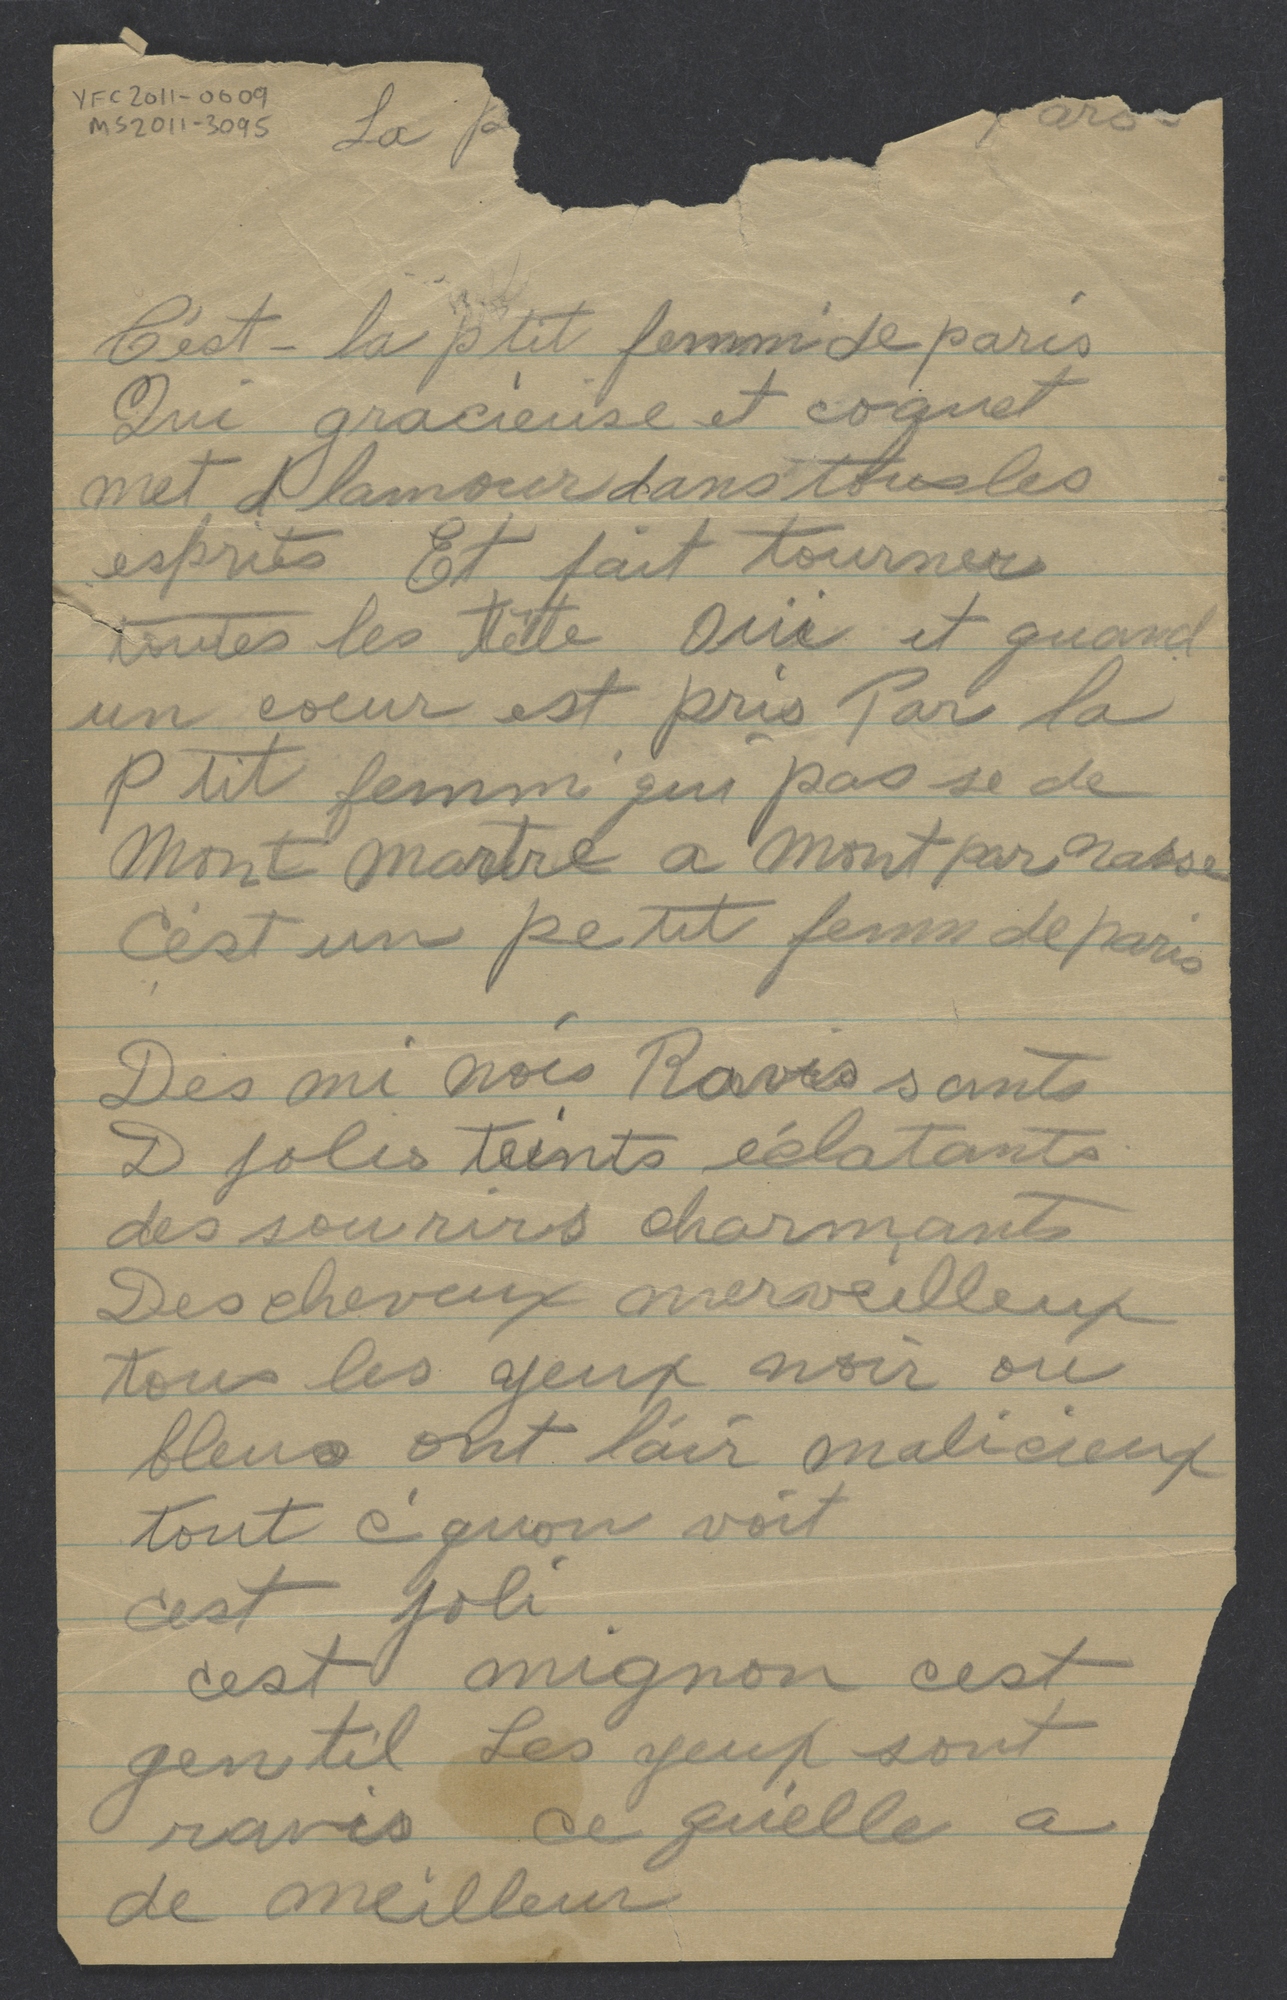 YFC2011-0609
MS2011-3095
La p
C'est - la p'tit femm' de paris
Qui gracieuse et coquet
met d lamour dans tous les
esprits Et fait tourner
toutes les tête Oui et quand
un coeur est pris Par la
P'tit femm' qui pas se de
Mont martre a Mont par nasse
C'est un petit femm de paris
Des mi nois Ravis sants
D jolis teints éclatants
des sourirs charmants
Des cheveux merveilleux
tous les yeux noir ou
bleus ont l'air malicieux
tout c' quon voit
c'est joli
c'est mignon cest
gentil Les yeux sont
ravis ce qu'elle a
de meilleur